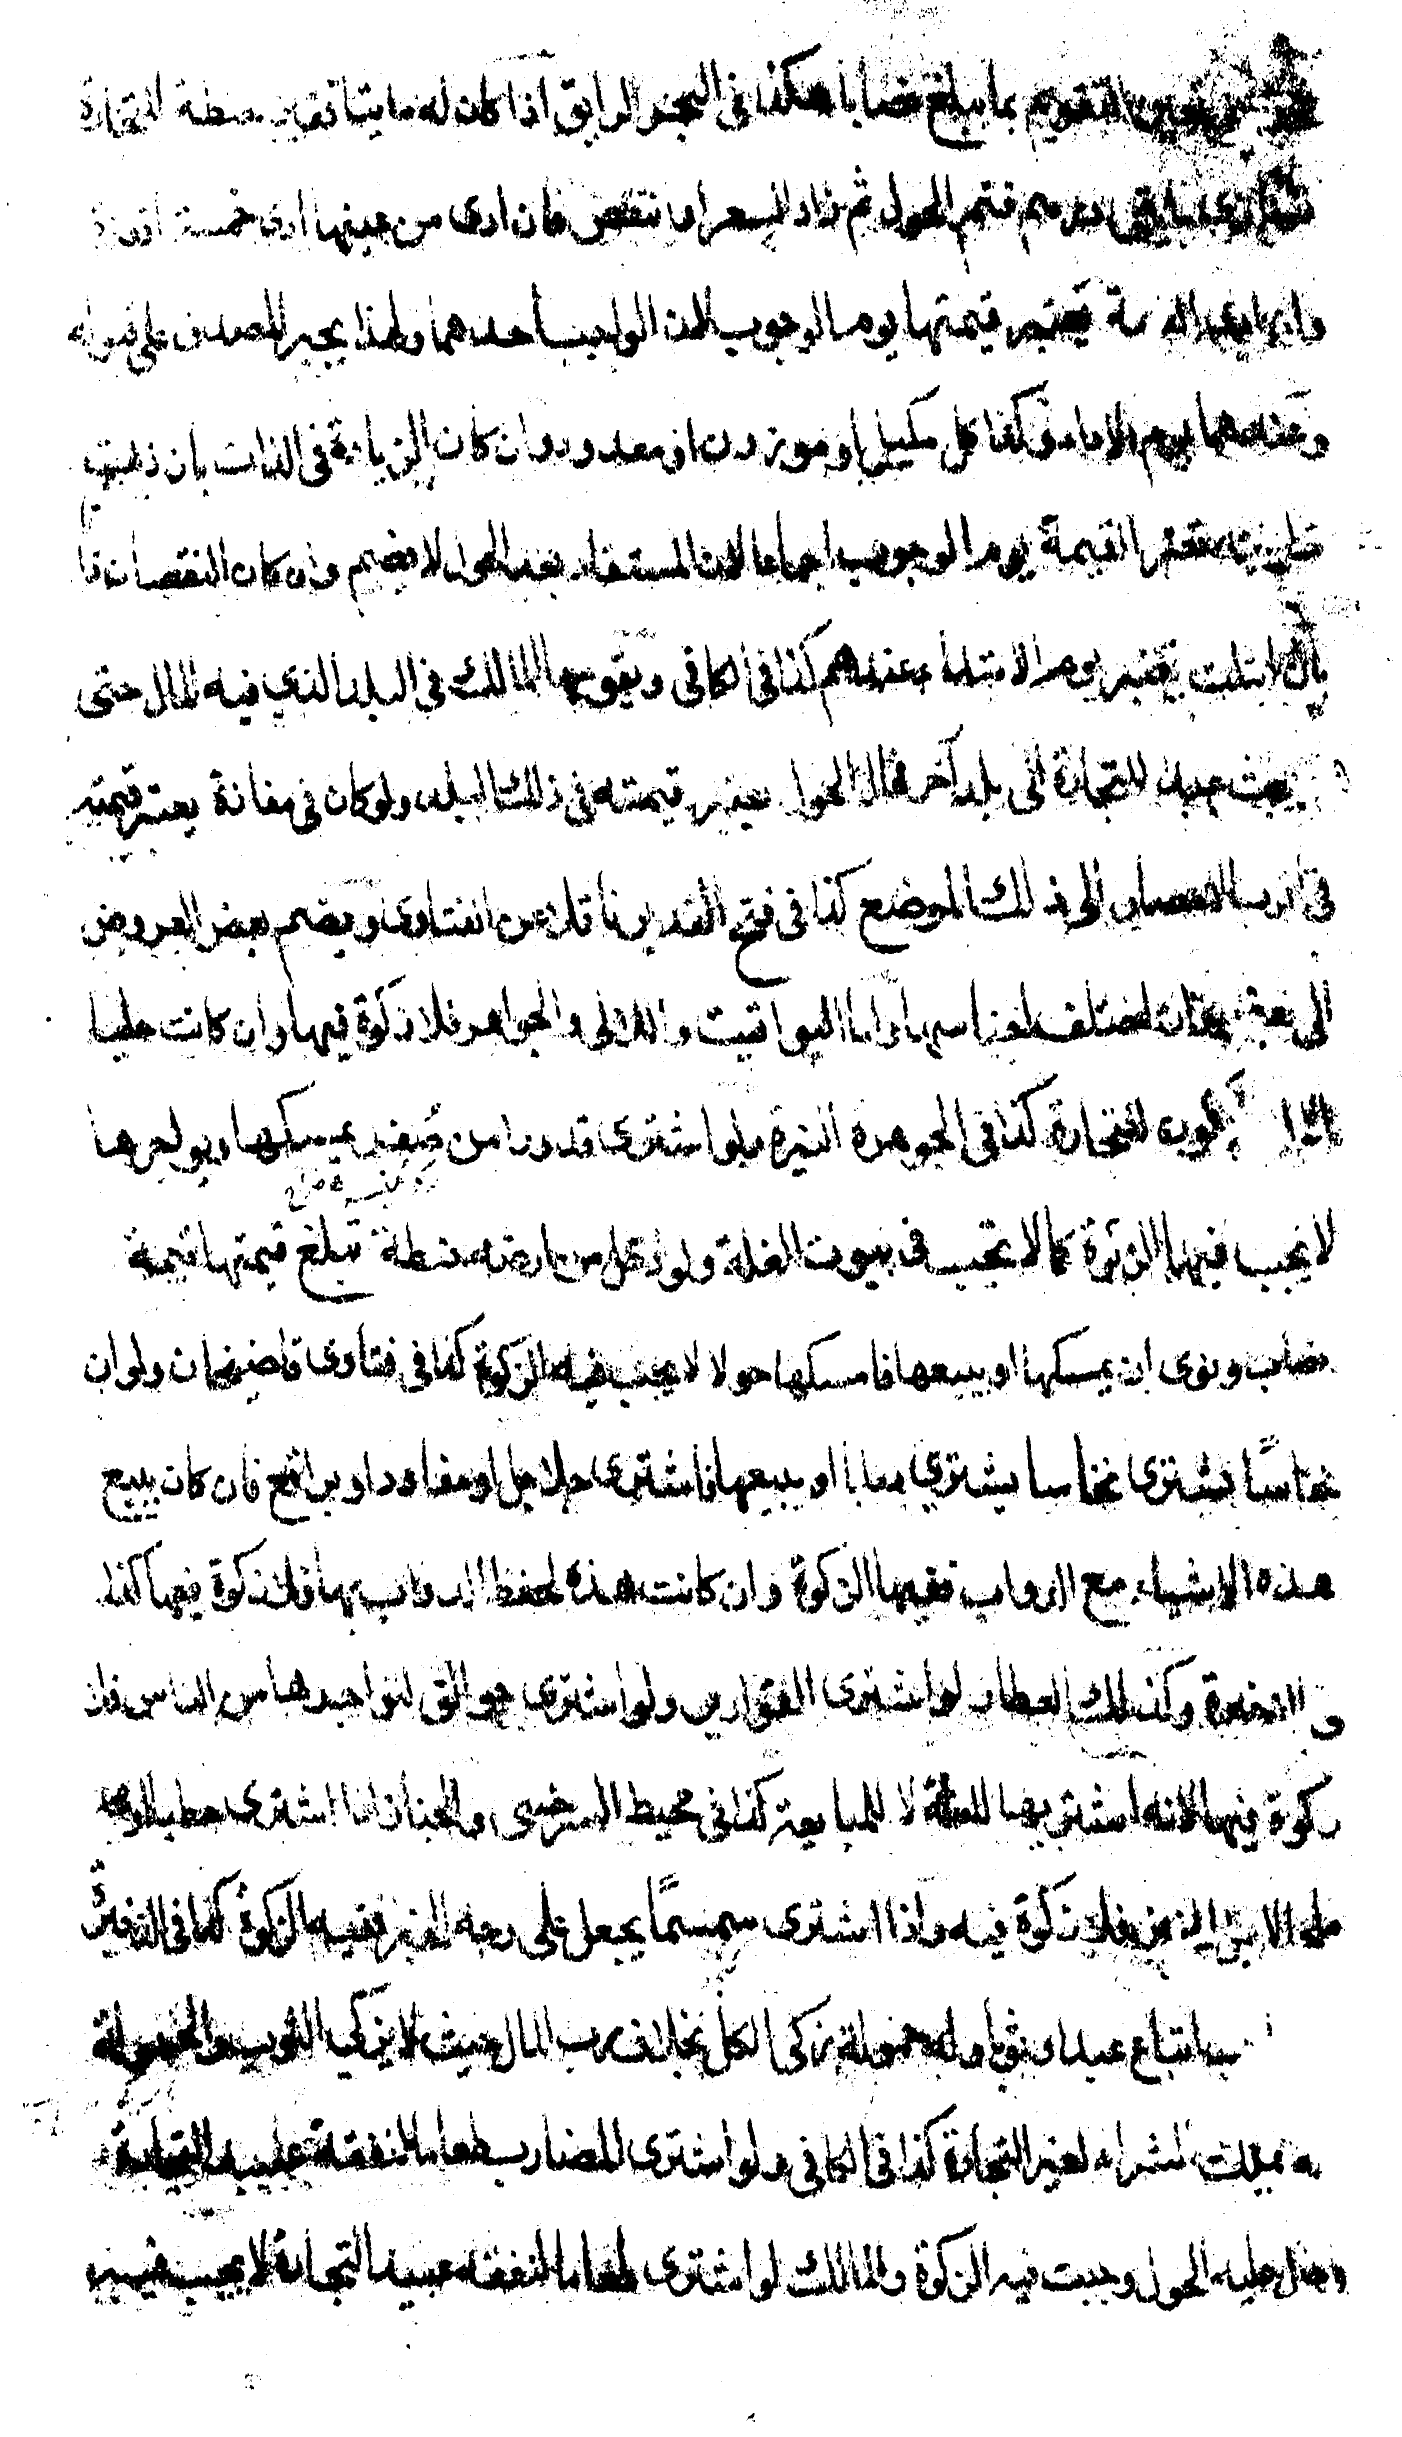 تعين التقويم بما يبلغ نصابا هكذا في البحر الرايق اذا كان له مايتا قفيز حنطة للتجارة
تساوي مايتي درهم فتم الحول ثم زاد السعر او نقص فان ادى من عينها ادى خمسة اقفزة
وان ادى القيمة يعتبر قيمتها يوم الوجوب لان الواجب احدهما ولهذا يجبر المصدق على قبوله
وعندهما يوم الاداء وكذا كل مكيل او موزون او معدود وان كان الزيادة في الذات بان ذهبت
رطوبته يعتبر القيمة يوم الوجوب اجماعا لان المستفاد بعد الحول لا يضم وان كان النقصان ذاتا
بان ابتلت يعتبر يوم الاداء عندهم كذا في الكافي ويقومها المالك في البلد الذي فيه المال حتى
بعث عبدا للتجارة الى بلد آخر فحال الحول يعتبر قيمته في ذلك البلد ولو كان في مفازة يعتبر قيمته
في اقرب الامصار الى ذلك الموضع كذا في فتح القدير ناقلا عن الفتاوى ويضم بعض العروض
الى بعض وان اختلف اجناسها واما اليواقيت واللالي والجواهر فلا زكوة فيها وان كانت حليا
الا ان يكون للتجارة كذا في الجوهرة النيرة ولو اشترى قدورا من صفر يمسكها ويواجرها
لا يجب فيها الزكوة كما لا تجب في بيوت الغلة ولو دخل من ارضه حنطة تبلغ قيمتها قيمة
نصاب ونوى ان يمسكها او يبيعها فامسكها حولا لا يجب فيه الزكوة كذا في فتاوى قاضيخان ولو ان
نخاسا يشترى نخاسا يشتري دوابا او يبيعها فاشترى جلاجل او مقاود او براقع فان كان يبيع
هذه الاشياء مع الدواب ففيها الزكوة وان كانت هذه لحفظ الدواب بها فلا زكوة فيها كذا
في الذخيرة وكذلك العطار لو اشترى القوارير ولو اشترى جوالق ليواجرها من الناس فلا
زكوة فيها لانه اشتريها للغلة لا للمبايعة كذا في محيط السرخسي والخباز اذا اشترى حطبا او
ملحا لاجل الخبز فلا زكوة فيه واذا اشترى سمسما يجعل على وجه الخبز ففيه الزكوة كذا في
ابتاع عبدا وثوبا وله حمولة زكى الكل بخلاف رب المال حيث لا يزكي الثوب والحمولة
يملك الشراء لغير التجارة كذا في الكافي ولو اشترى المضارب طعاما لنفقة عبيد التجارة
وحال عليه الحول وجبت فيه الزكوة والمالك لو اشترى طعاما لنفقة عبيد التجارة لا يجب فيه